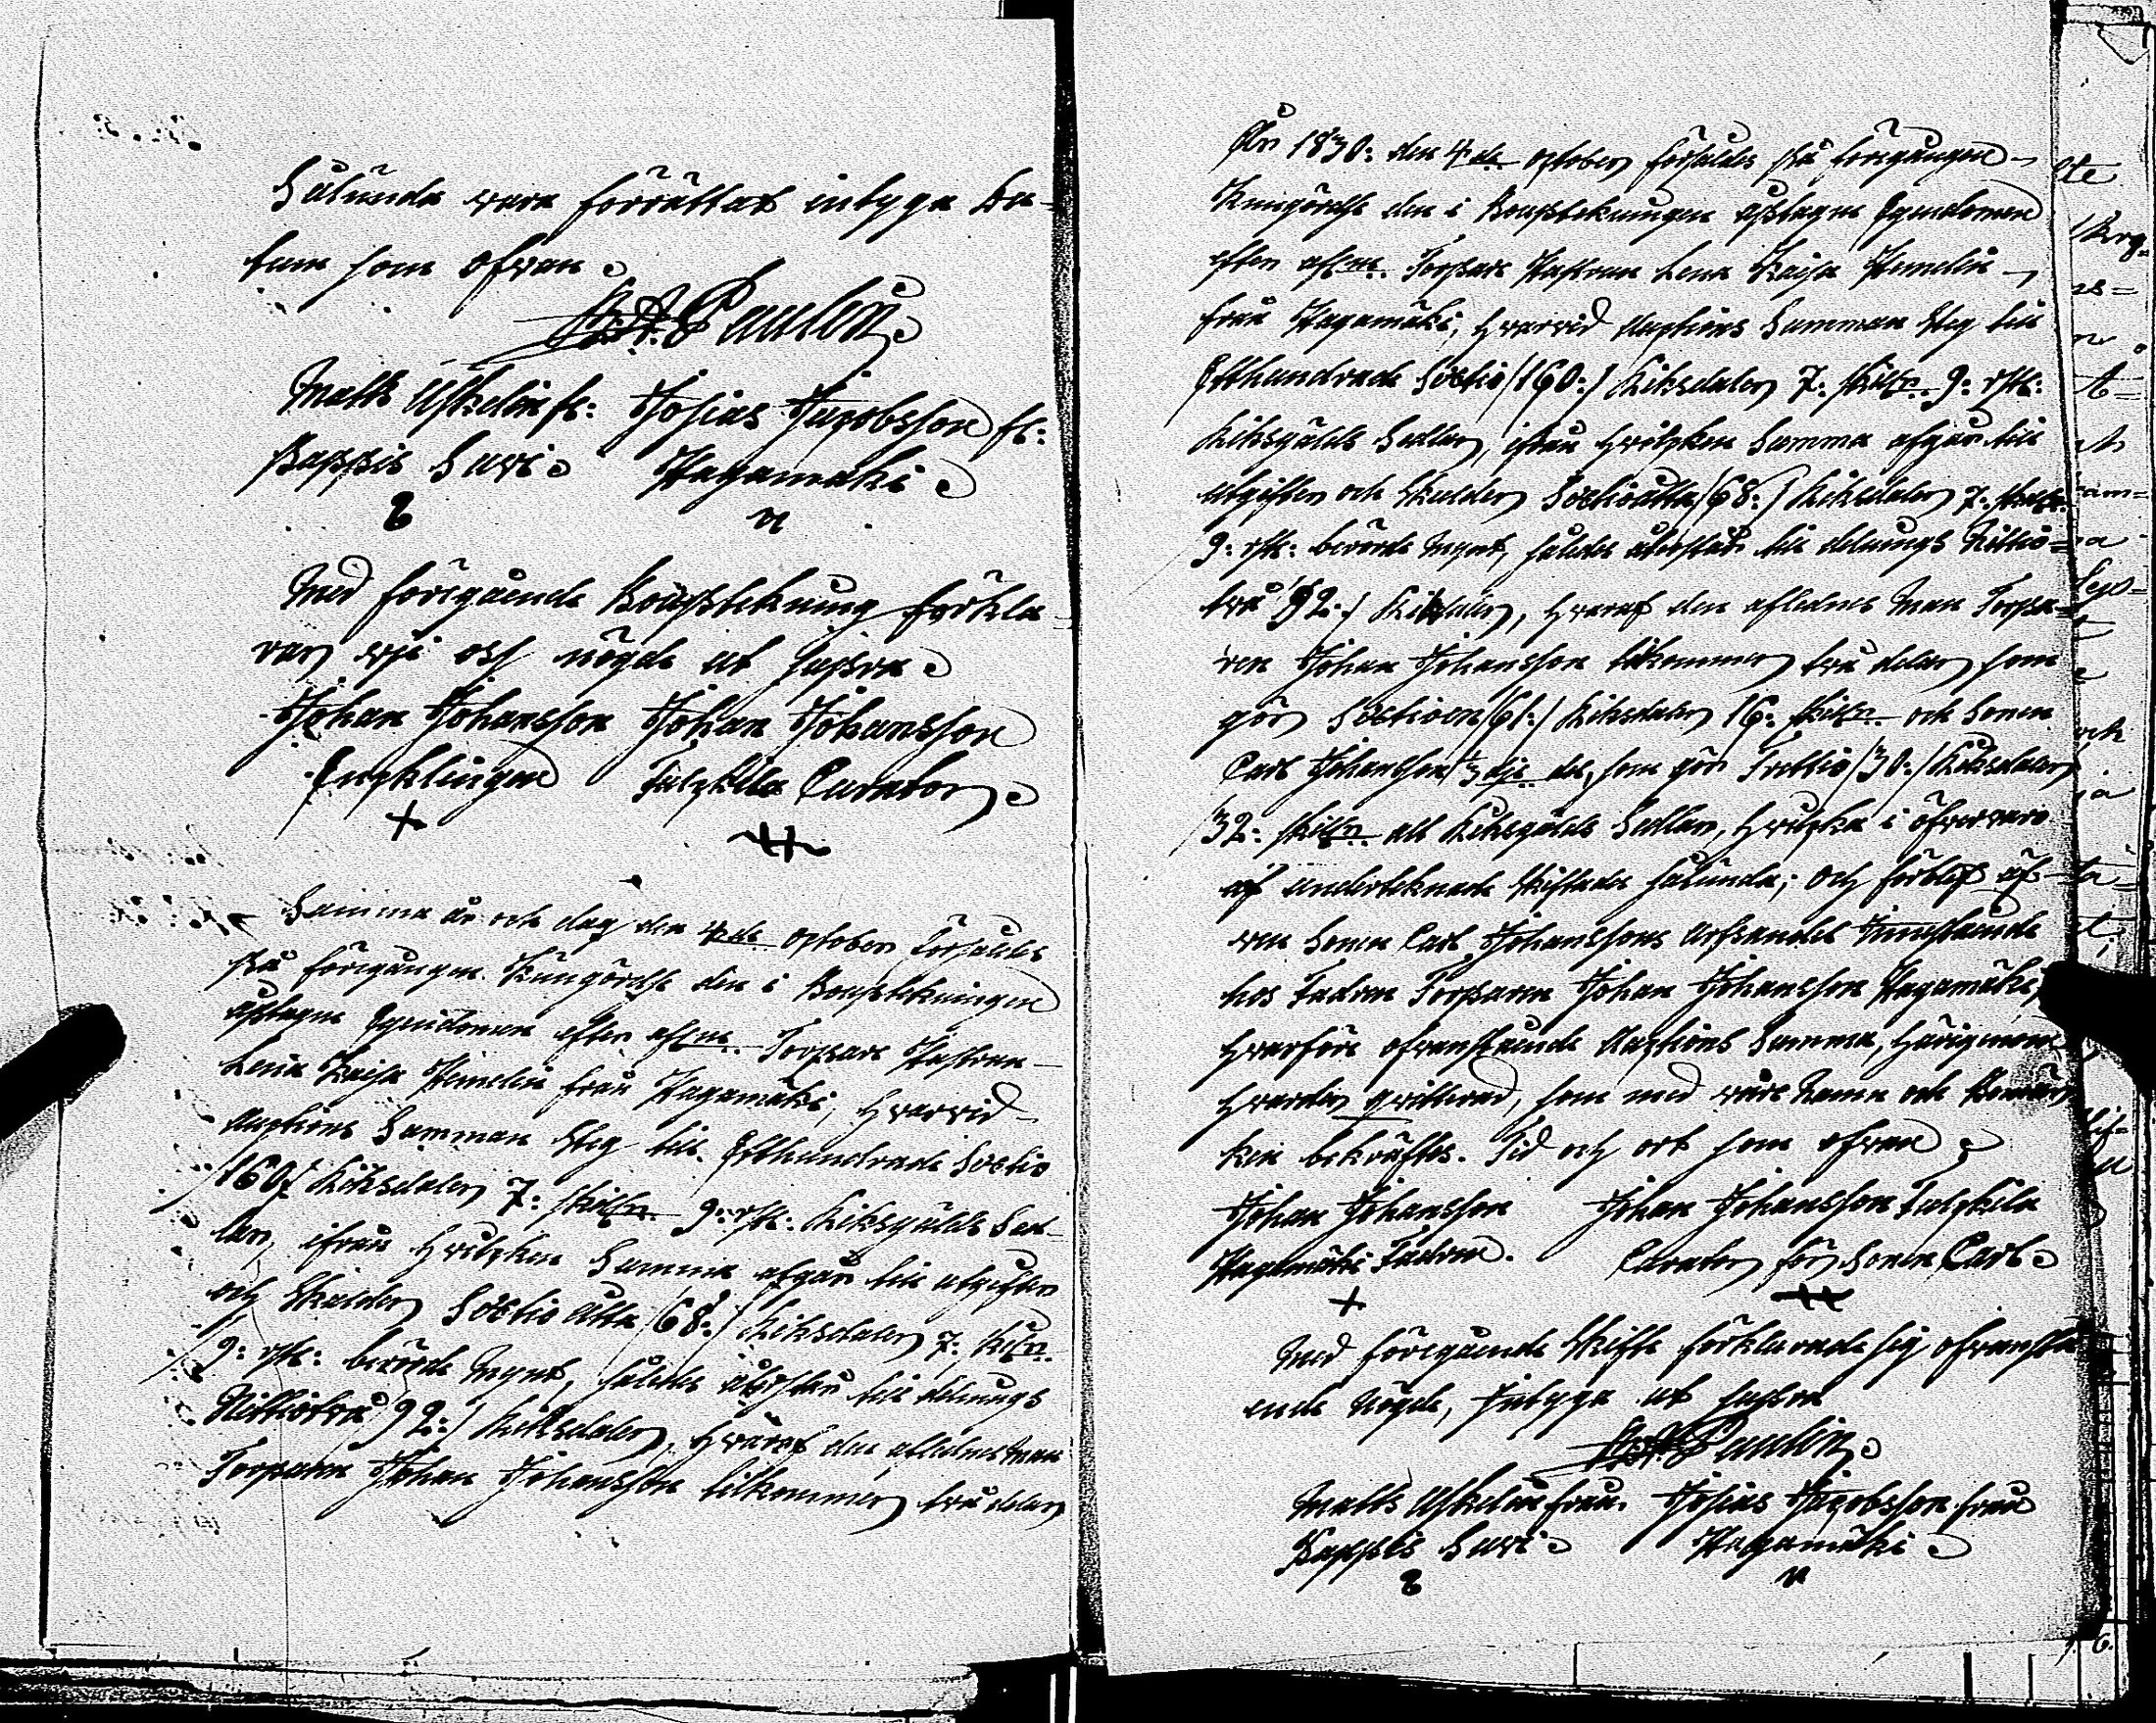 Sålunda vara förrättat intyga Da-
tum som ofvan
Paulin
Matts Uskelin fr: Josias Jacobsson fr:
Pappis Suvi Hagamäki
Med föregående Bouptekning förkla-
rar vji oss nögde ut supra
Johan Johansson Johan Johansson
Enklingen Tulkkila Curator
Samma år och dag den 4de October försåldes
på föregången Kungörelse den i Bouptekningen
uptagne Egendomen efter afledne Torpare Hustrun
Lena Kaisa Hemelin från Hagamäki, hvarvid
Auctions Summan steg till Etthundrade Sextio
/160:/ Riksdaler 7: skill. 9: rst: Riksgälds Sed-
lar, ifrån hvilken Summa afgår till utgifter
och Skulder Sextio åtta /68:/ Riksdaler 7: skill.
9: rst: berörde Mynt, således återstår till delnings
Nittiotvå /92:/ Riksdaler, hvaraf den aflednes Man
Torparen Johan Johansson tilkommer två delar
År 1830: den 4de October försåldes på föregången
Kungörelse den i Bouptekningen uptagne Egendomen
efter afledne Torpare Hustrun Lena Kaisa Hemelin
från Hagamäki, hvarvid Auctions Summan steg till
Etthundrade Sextio /160:/ Riksdaler 7: skill. 9: rst:
Riksgälds Sedlar, ifrån hvilken Summa afgår till
utgifter och Skulder Sextioåtta /68:/ Riksdaler 7: skill.
9: rst: berörde Mynt, således återstår till delnings Nittio-
två /92:/ Riksdaler, hvaraf den aflednes Man Torpa-
ren Johan Johansson tilkommer två delar som
gör Sextioen /61:/ Riksdaler 16: skill. och Sonen
Carl Johansson 1/3dje del, som gör Trettio /30:/ Riksdaler
32: skill. all Riksgälds Sedlar, hvilka i öfvervaro
af undertecknade skiftades sålunda; och förblef äf-
ven Sonen Carl Johanssons Arfsandel innestående
hos Fadren Torparen Johan Johansson Hagamäki,
hvarföre ofvanstående Auctions Summa, härigenom
hvarder qvitterad, som med våre Namn och Bomär-
ken bekräftes. Tid och ort som ofvan
Johan Johansson Johan Johansson Tulkkila
Hagamäki Fadren. Curator för Sonen Carl
Med föregående Skifte förklarade sig ofvanstå-
ende Nögde, Intyga ut supra
Paulin
Matts Uskelin från Josias Jacobsson från
Pappis Suvi Hagamäki